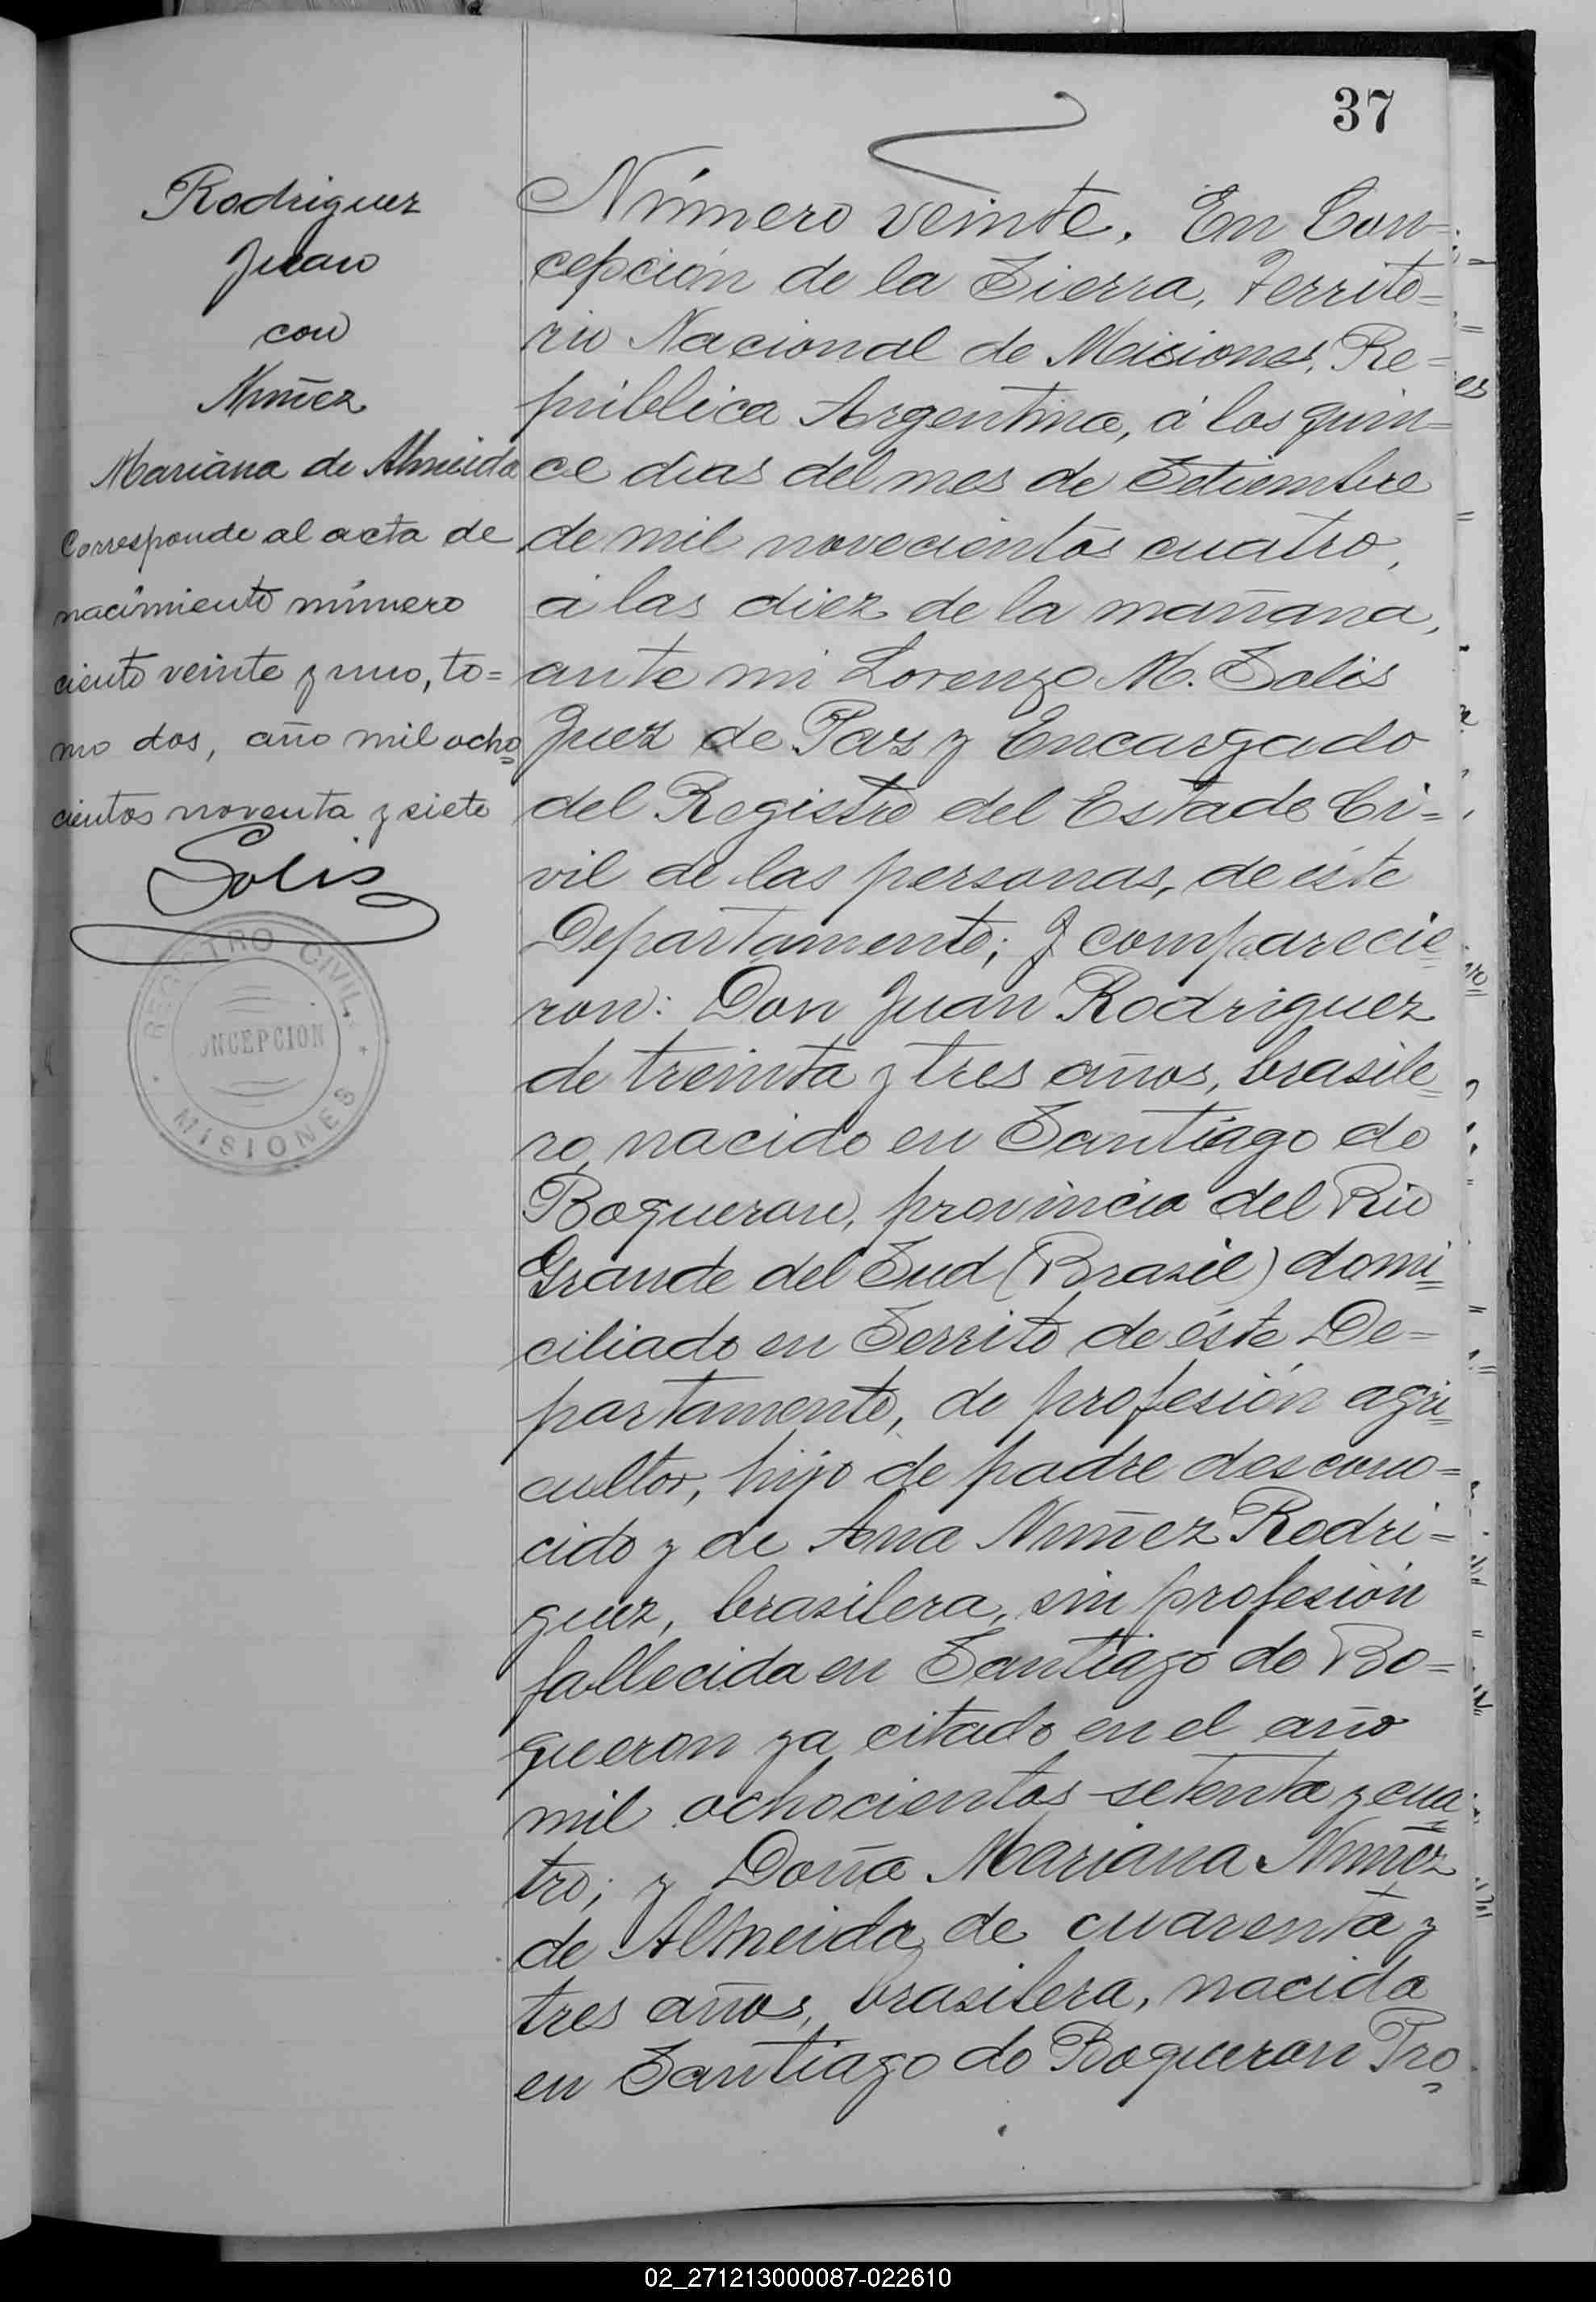 37
Rodriguez
Juan
con
Nuñez
Mariana de Almeida
Corresponde al acta de
nacimiento número
ciento veinte y uno, to=
mo dos, año mil ocho=
cientos noventa y siete
Solis
REGISTRO CIVIL
CONCEPCION
MISIONES
Número veinte. En Con=
cepción de la Sierra, Territo=
rio Nacional de Misiones, Re=
pública Argentina, á los quin=
ce dias del mes de Setiembre
de mil novecientos cuatro,
á las diez de la mañana,
ante mi Lorenzo M. Solis
Juez de Paz y Encargado
del Registro del Estado Ci=
vil de las personas, de éste
Departamento; y comparecie=
ron: Don Juan Rodriguez
de treinta y tres años, brasile=
ro, nacido en Santiago do
Boqueron, provincia del Rio
Grande del Sud (Brazil) domi=
ciliado en Serrito de éste De=
partamento, de profesión agri=
cultor, hijo de padre descono=
cido y de Ana Nuñez Rodri=
guez, brasilera, sin profesión
fallecida en Santiago do Bo=
queron ya citado en el año
mil ochocientos setenta y cua=
tro; y Doña Mariana Nuñez
de Almeida, de cuarenta y
tres años, brasilera, nacida
en Santiago do Boqueron Pro=
02_271213000087-022610